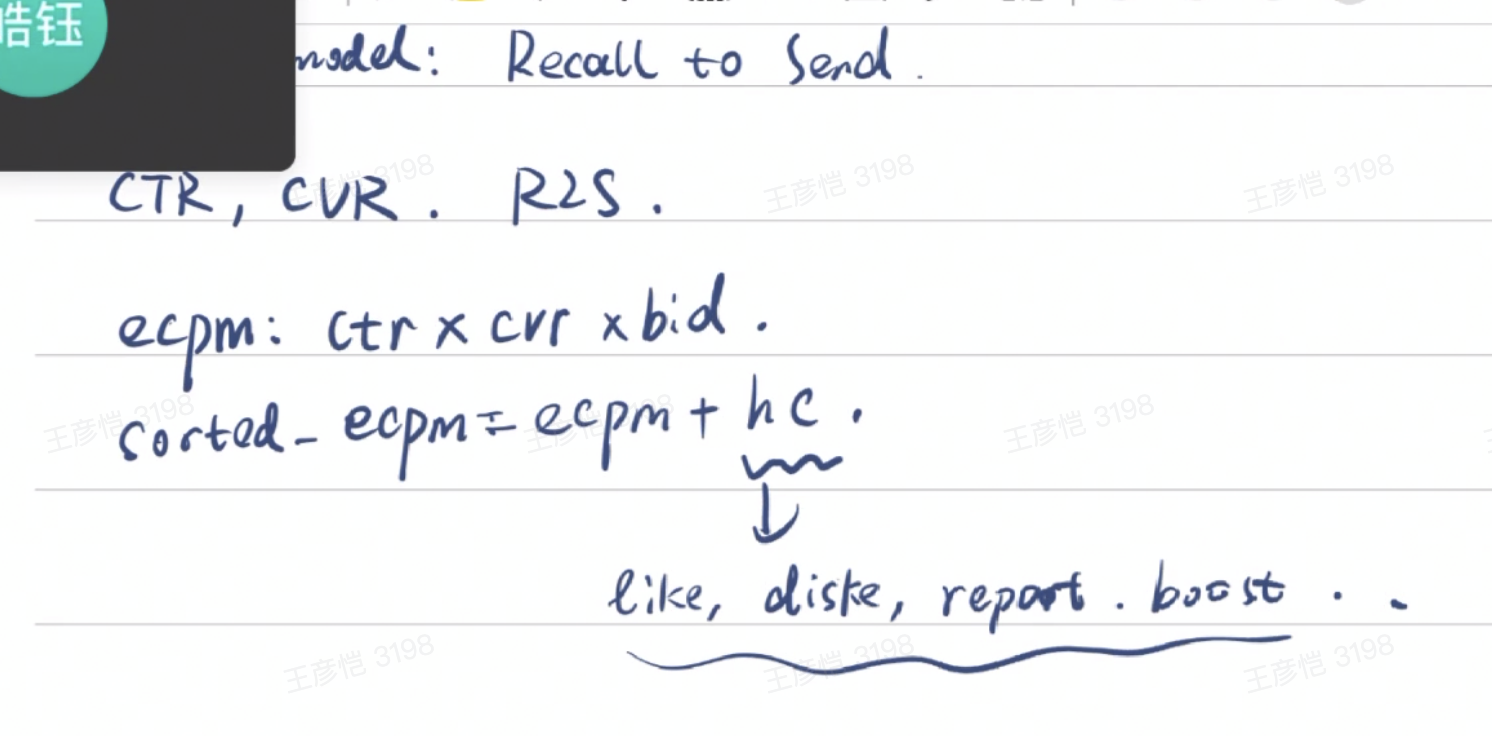 皓钰
model: Recall to Send.
CTR, CVR. R2S.
ecpm: ctr x cvr x bid.
sorted_ecpm = ecpm + hc.
like, diske, report. boost . .
王彦恺 3198
王彦恺 3198
王彦恺 3198
王彦恺 3198
王彦恺 3198
王彦恺 3198
王彦恺 3198
王彦恺 3198
王彦恺 3198